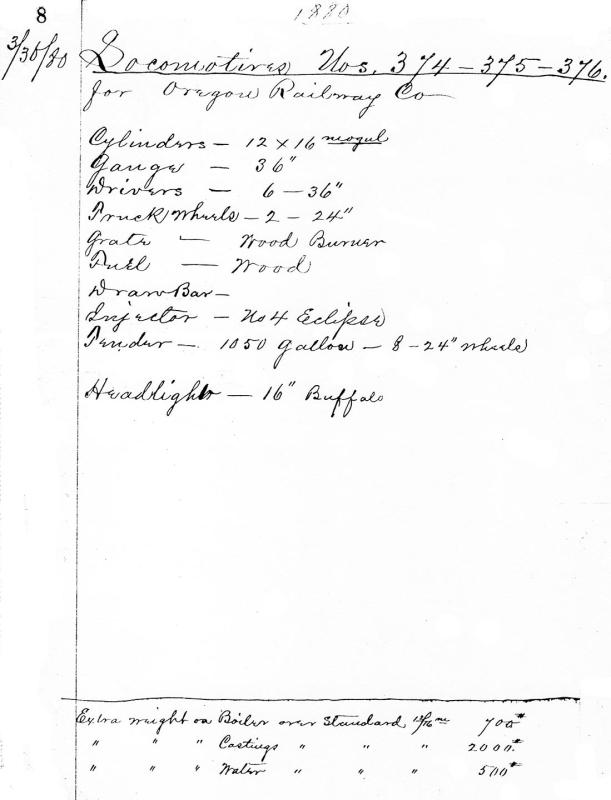 8
1880
3/30/80
Locomotives Nos. 374 – 375 – 376.
for Oregon Railway Co
Cylinders – 12 x 16 mogul
Gauge – 36"
Drivers – 6 – 36"
Truck Wheels – 2 – 24"
Grate – Wood Burner
Fuel – Wood
Draw Bar –
Injector – No 4 Eclipse
Tender – 1050 Gallon – 8 – 24" Wheels
Headlight – 16" Buffalo
Extra weight on Boiler over Standard 12/16 700#
" " " Castings " " " 2000.#
" " " Water " " " 500#